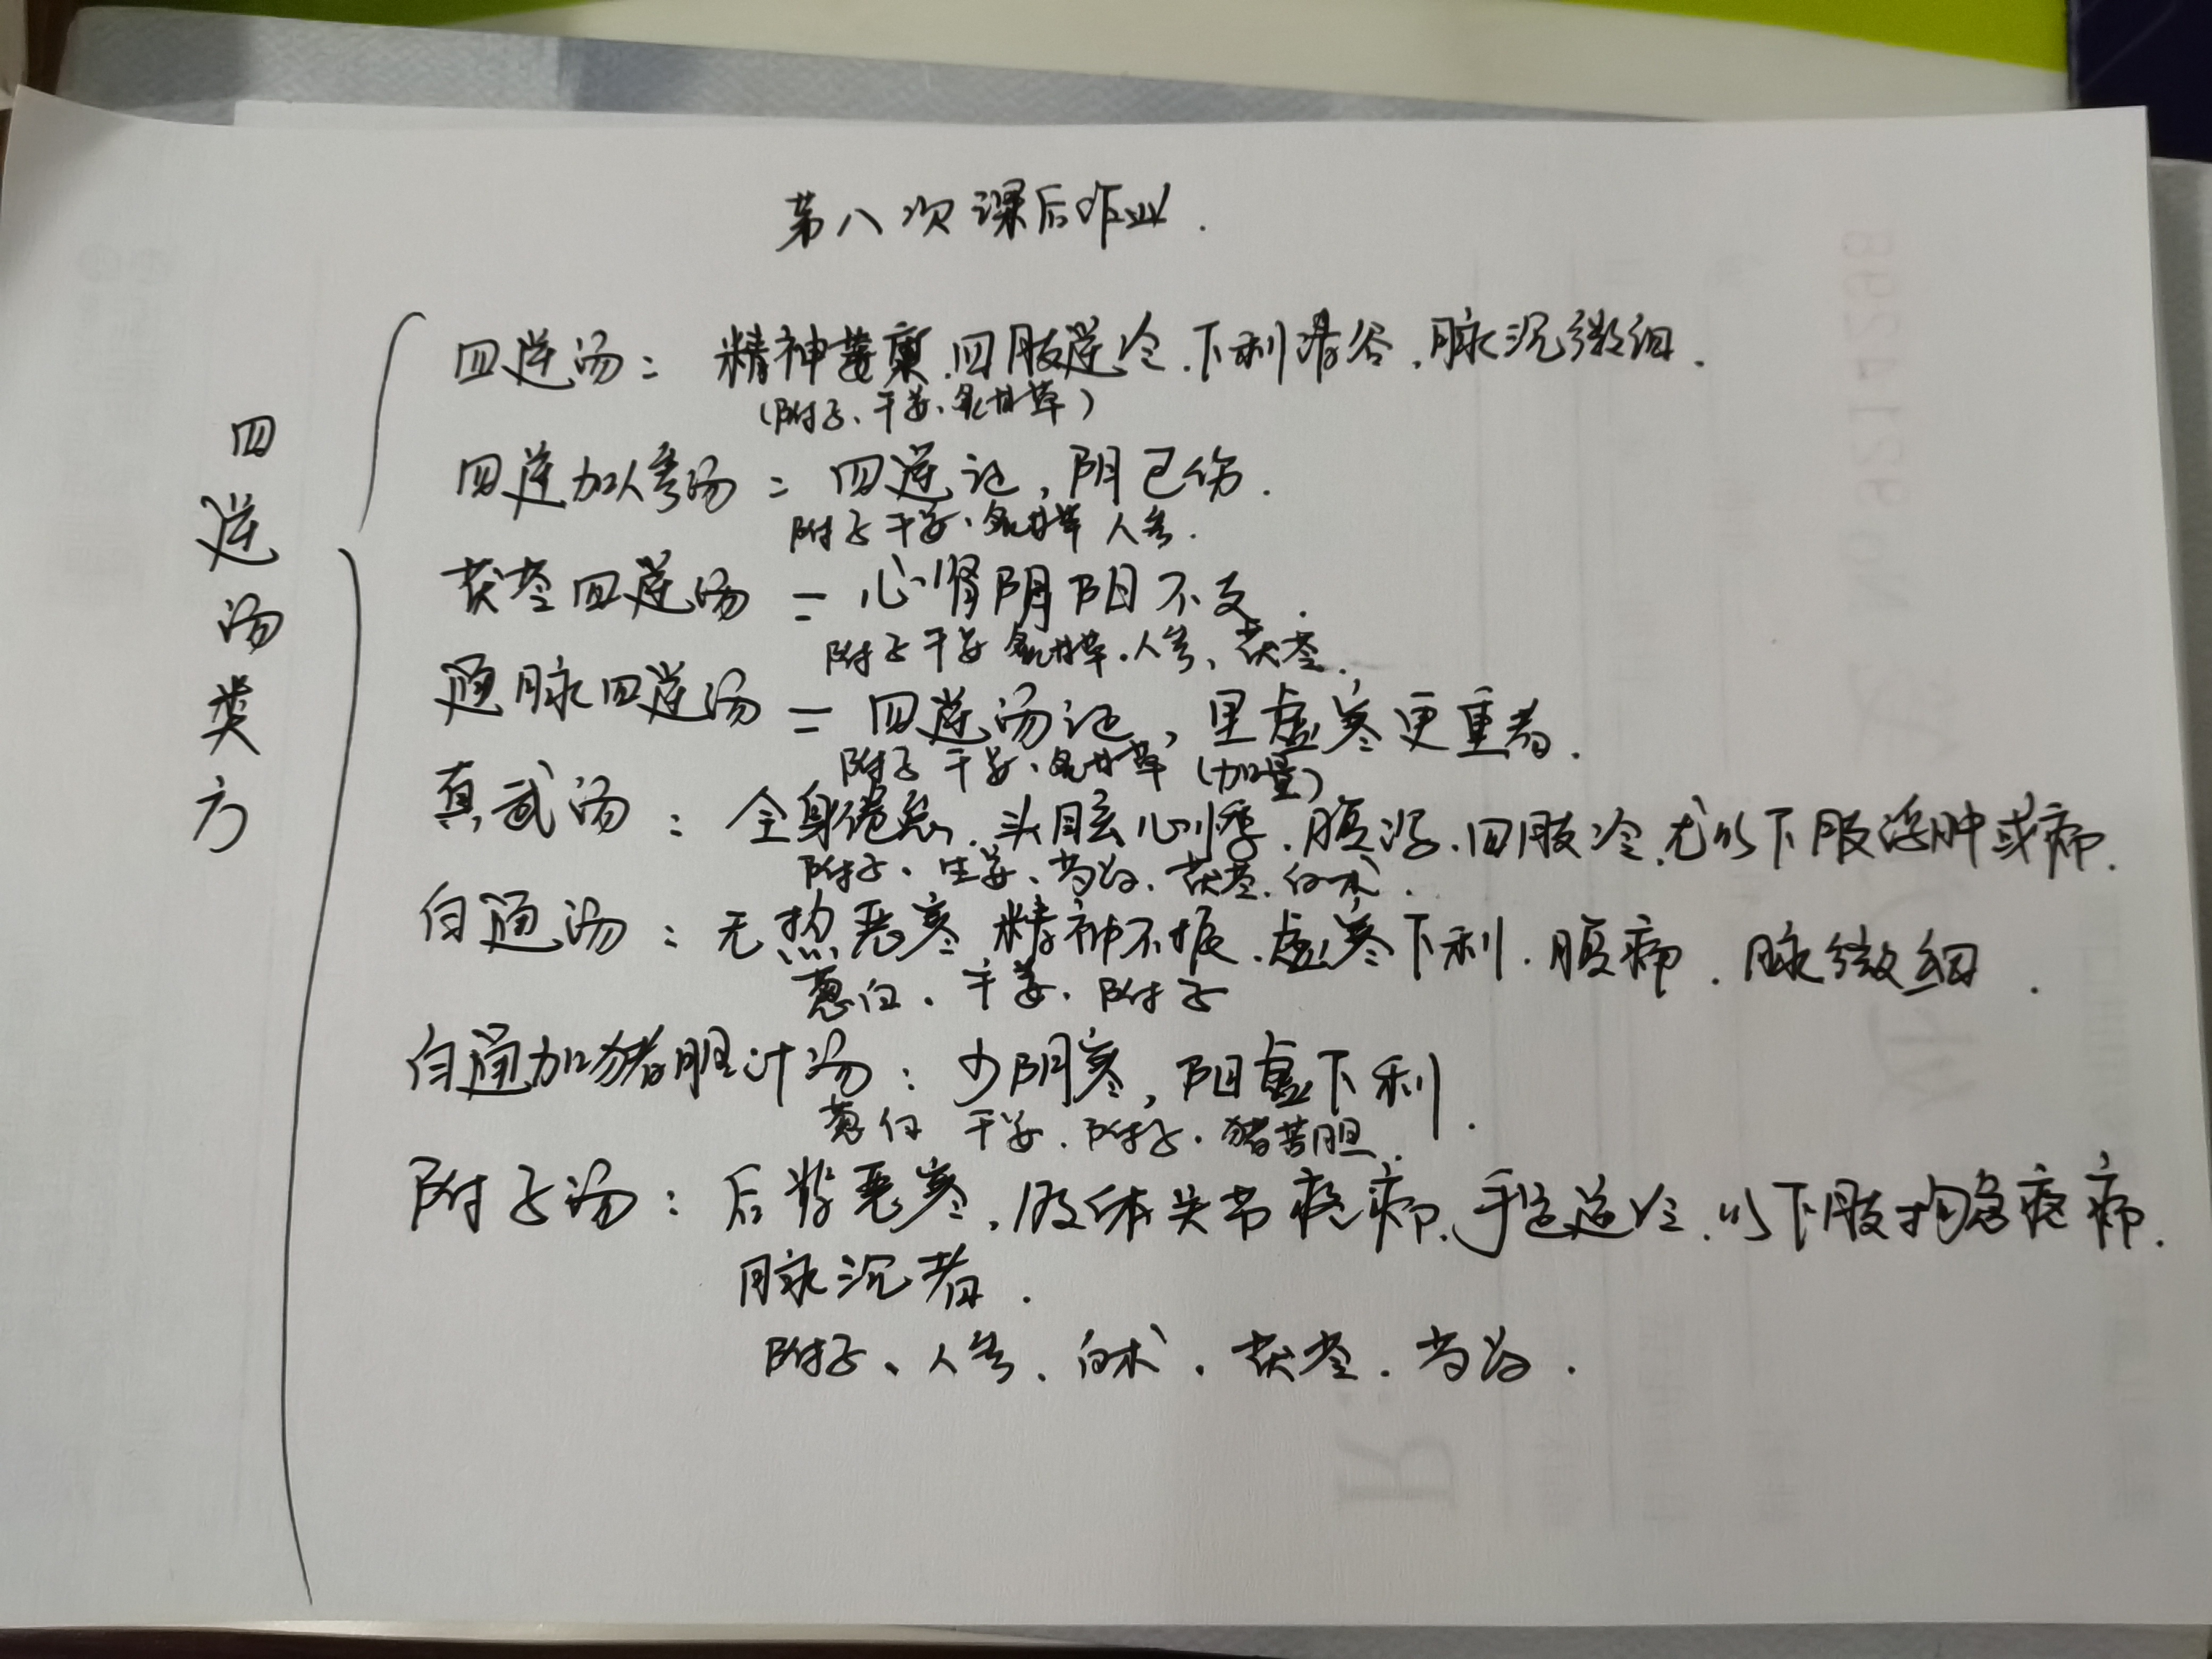 第八次课后作业.
四逆汤类方
四逆汤：精神萎靡.四肢逆冷.下利清谷.脉沉微细.
（附子、干姜、炙甘草）
四逆加人参汤：四逆证，阴已伤.
附子干姜、炙甘草 人参.
茯苓四逆汤=心肾阴阳不交.
附子干姜 炙甘草.人参、茯苓.
通脉四逆汤=四逆汤证，里虚寒更重者.
附子 干姜、炙甘草（加量）
真武汤：全身倦怠.头眩心悸.腹泻.四肢冷.尤以下肢浮肿或痛.
附子、生姜、芍药.茯苓.白术.
白通汤：无热恶寒 精神不振.虚寒下利.腹痛.脉微细.
葱白.干姜.附子
白通加猪胆汁汤：少阴寒，阳虚下利.
葱白 干姜.附子.猪苦胆.
附子汤：后背恶寒.肢体关节疼痛.手足逆冷.以下肢拘急疼痛.
脉沉者.
附子、人参、白术、茯苓.芍药.